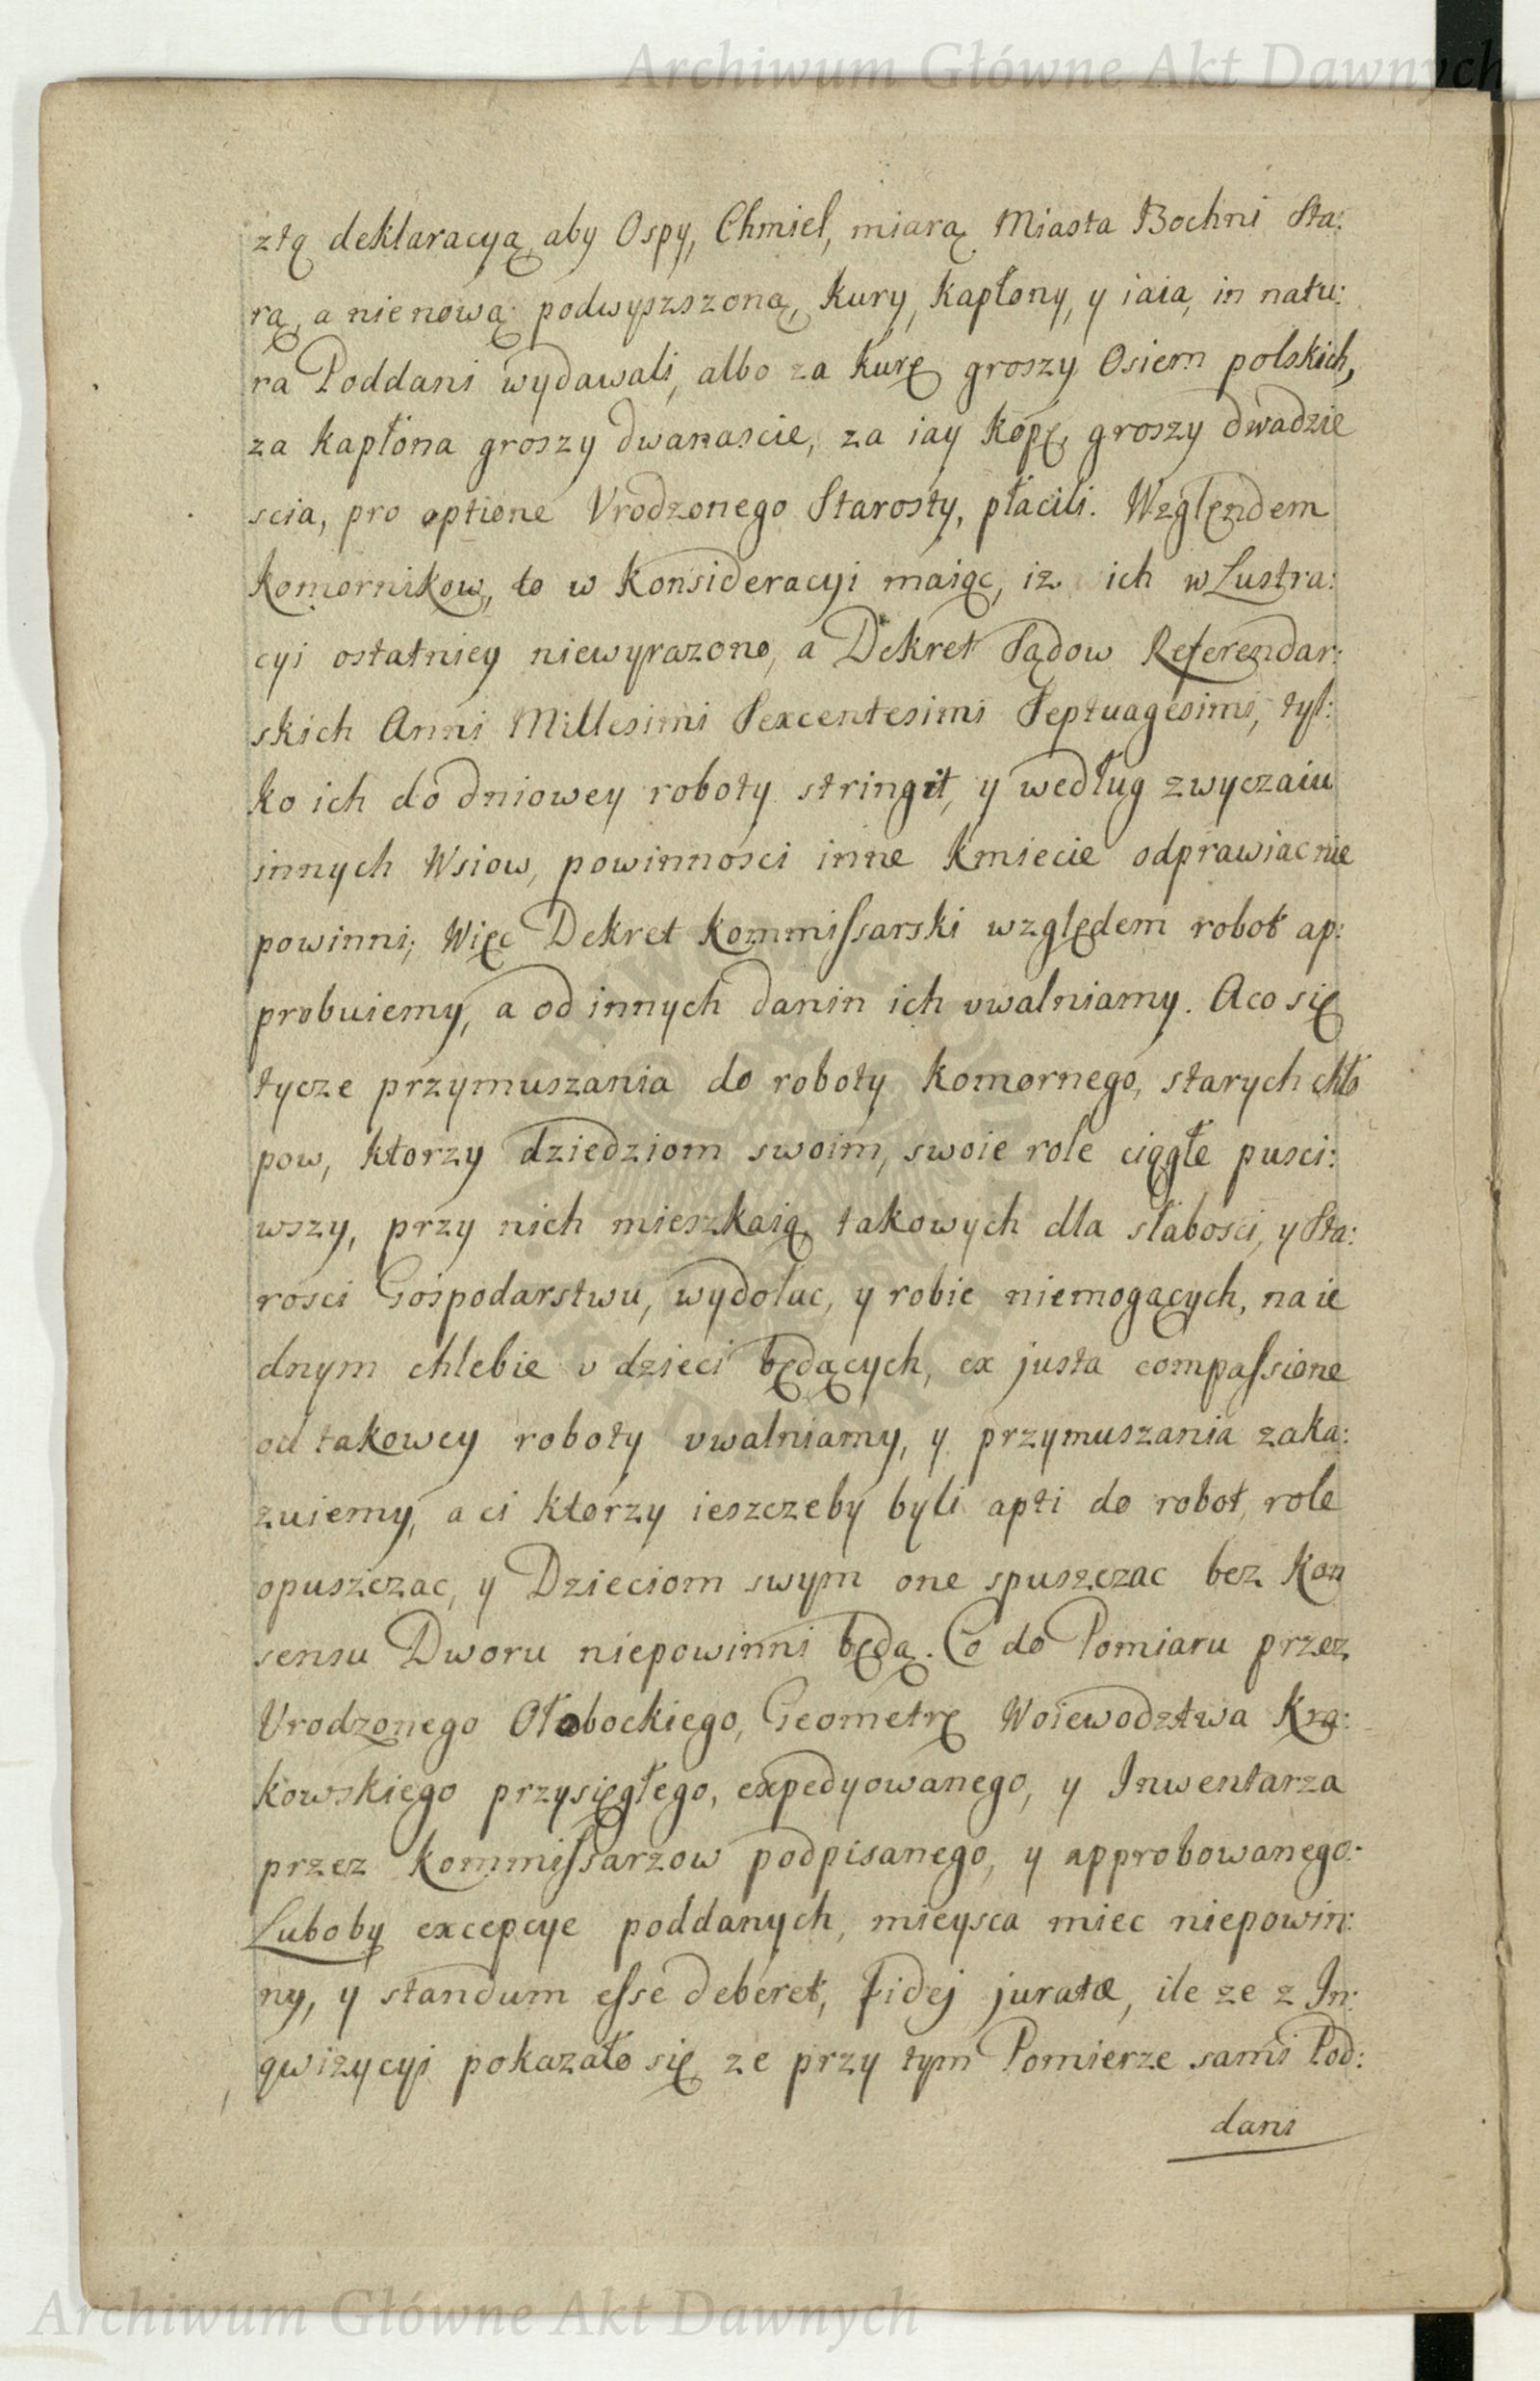 Archiwum Główne Akt Dawnych
ztą deklaracyą, aby Ospy, Chmiel, miarą Miasta Bochni Sta:
rą, a nie nową podwyszszoną, Kury, Kapłony, y iaia, in natu:
ra Poddani wydawali, albo za Kurę groszy Osiem polskich,
za Kapłona groszy dwanascie, za iay Kopę, groszy dwadzie
scia, pro optione Vrodzonego Starosty, płacili. Względem
Komornikow, to w Konsideracyi maiąc, iz ich w Lustra:
cyi ostatniey niewyrazono, a Dekret Sądow Referendar:
skich Anni Millesimi Sexcentesimi Septuagesimi, tyl:
ko ich do dniowey roboty stringit, y według zwyczaiu
innych Wsiow, powinnosci inne Kmiecie odprawiac nie
powinni; Więc Dekret Kommissarski względem robot ap:
probuiemy, a od innych danin ich uwalniamy. A co się
tycze przymuszania do roboty Komornego, starych chło
pow, ktorzy dziedziom swoim, swoie role ciągłe pusci:
wszy, przy nich mieszkaią, takowych dla słabosci, y Sta:
rosci Gospodarstwu, wydołac, y robic niemogących, na ie
dnym chlebie u dzieci będących, ex justa compassione
od takowey roboty uwalniamy, y przymuszania zaka:
zuiemy, a ci ktorzy ieszczeby byli apti do robot, role
opuszczac, y Dzieciom swym one spuszczac bez Kon
sensu Dworu niepowinni będą. Co do Pomiaru przez
Vrodzonego Ołobockiego, Geometrę Woiewodztwa Kra:
kowskiego przysięgłego, expedyowanego, y Inwentarza
przez Kommissarzow podpisanego, y approbowanego:
Luboby excepcye poddanych, mieysca miec niepowin:
ny, y standum esse deberet, Fidej juratæ, ile ze z In:
qwizycyi pokazało się ze przy tym Pomierze sami Pod:
dani
Archiwum Główne Akt Dawnych